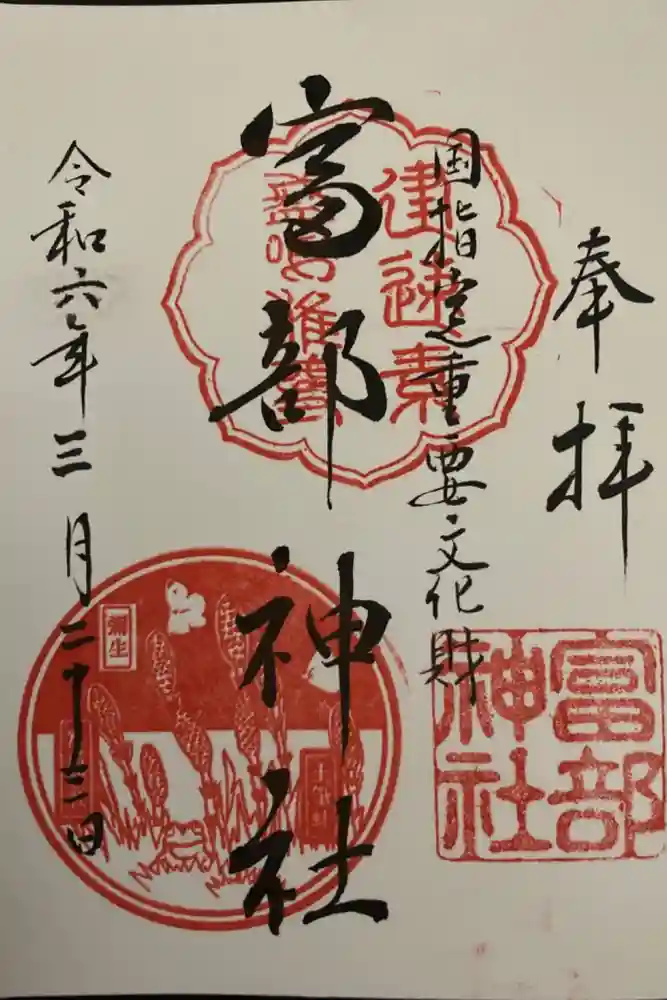 奉拝
国指定重要文化財
富部神社
令和六年三月二十三日
建速素
富部
神社
彌生